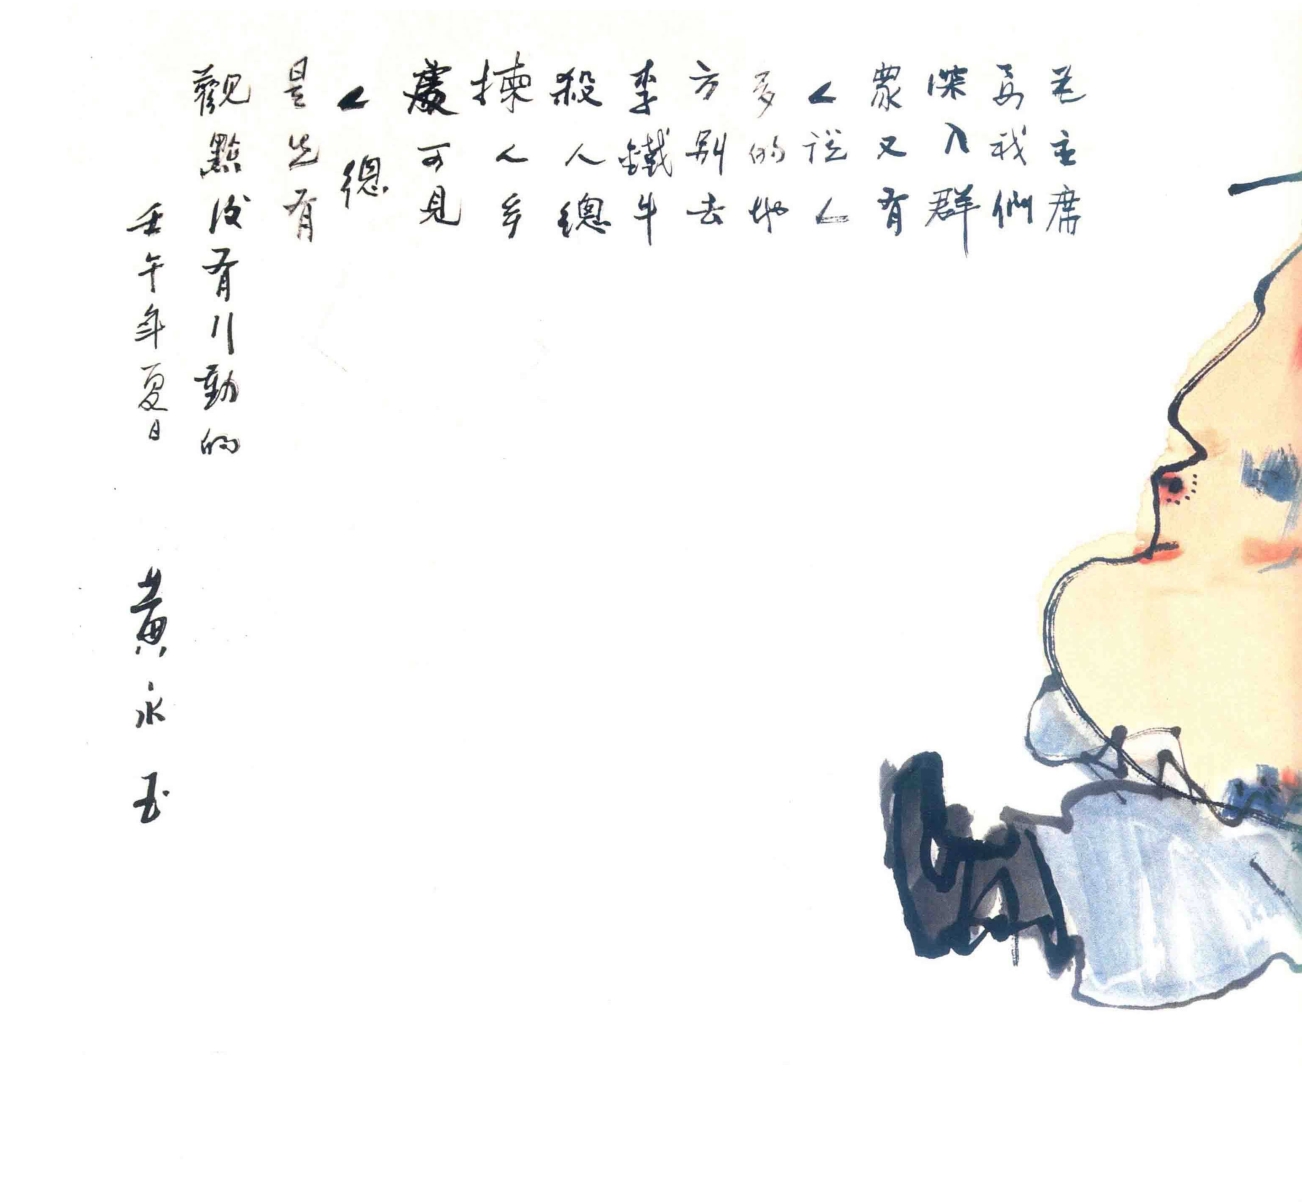 毛主席
要我們
深入群
衆又有
人說人
多的地
方别去
李鐵牛
殺人總
揀人多
處可見
人總
是先有
觀點後有行動的
壬午年夏日
黃永玉